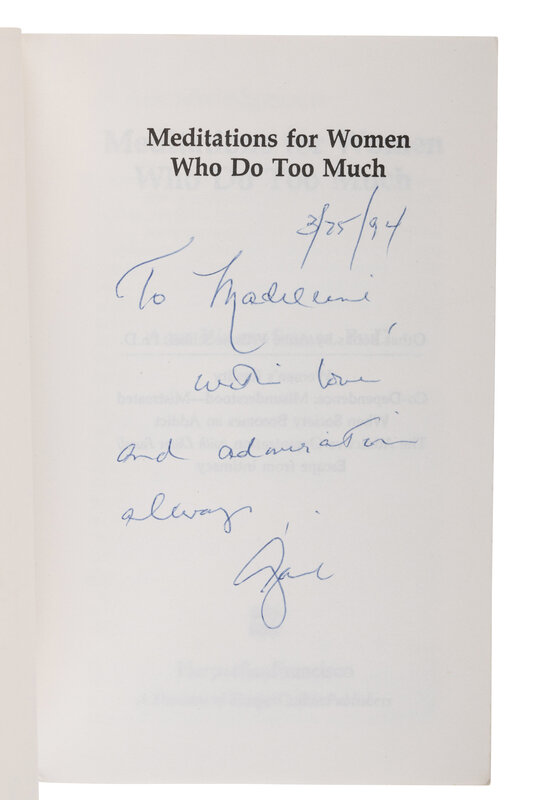 Meditations for Women
Who Do Too Much
3/25/94
To Madeleine,
with love
and admiration
always,